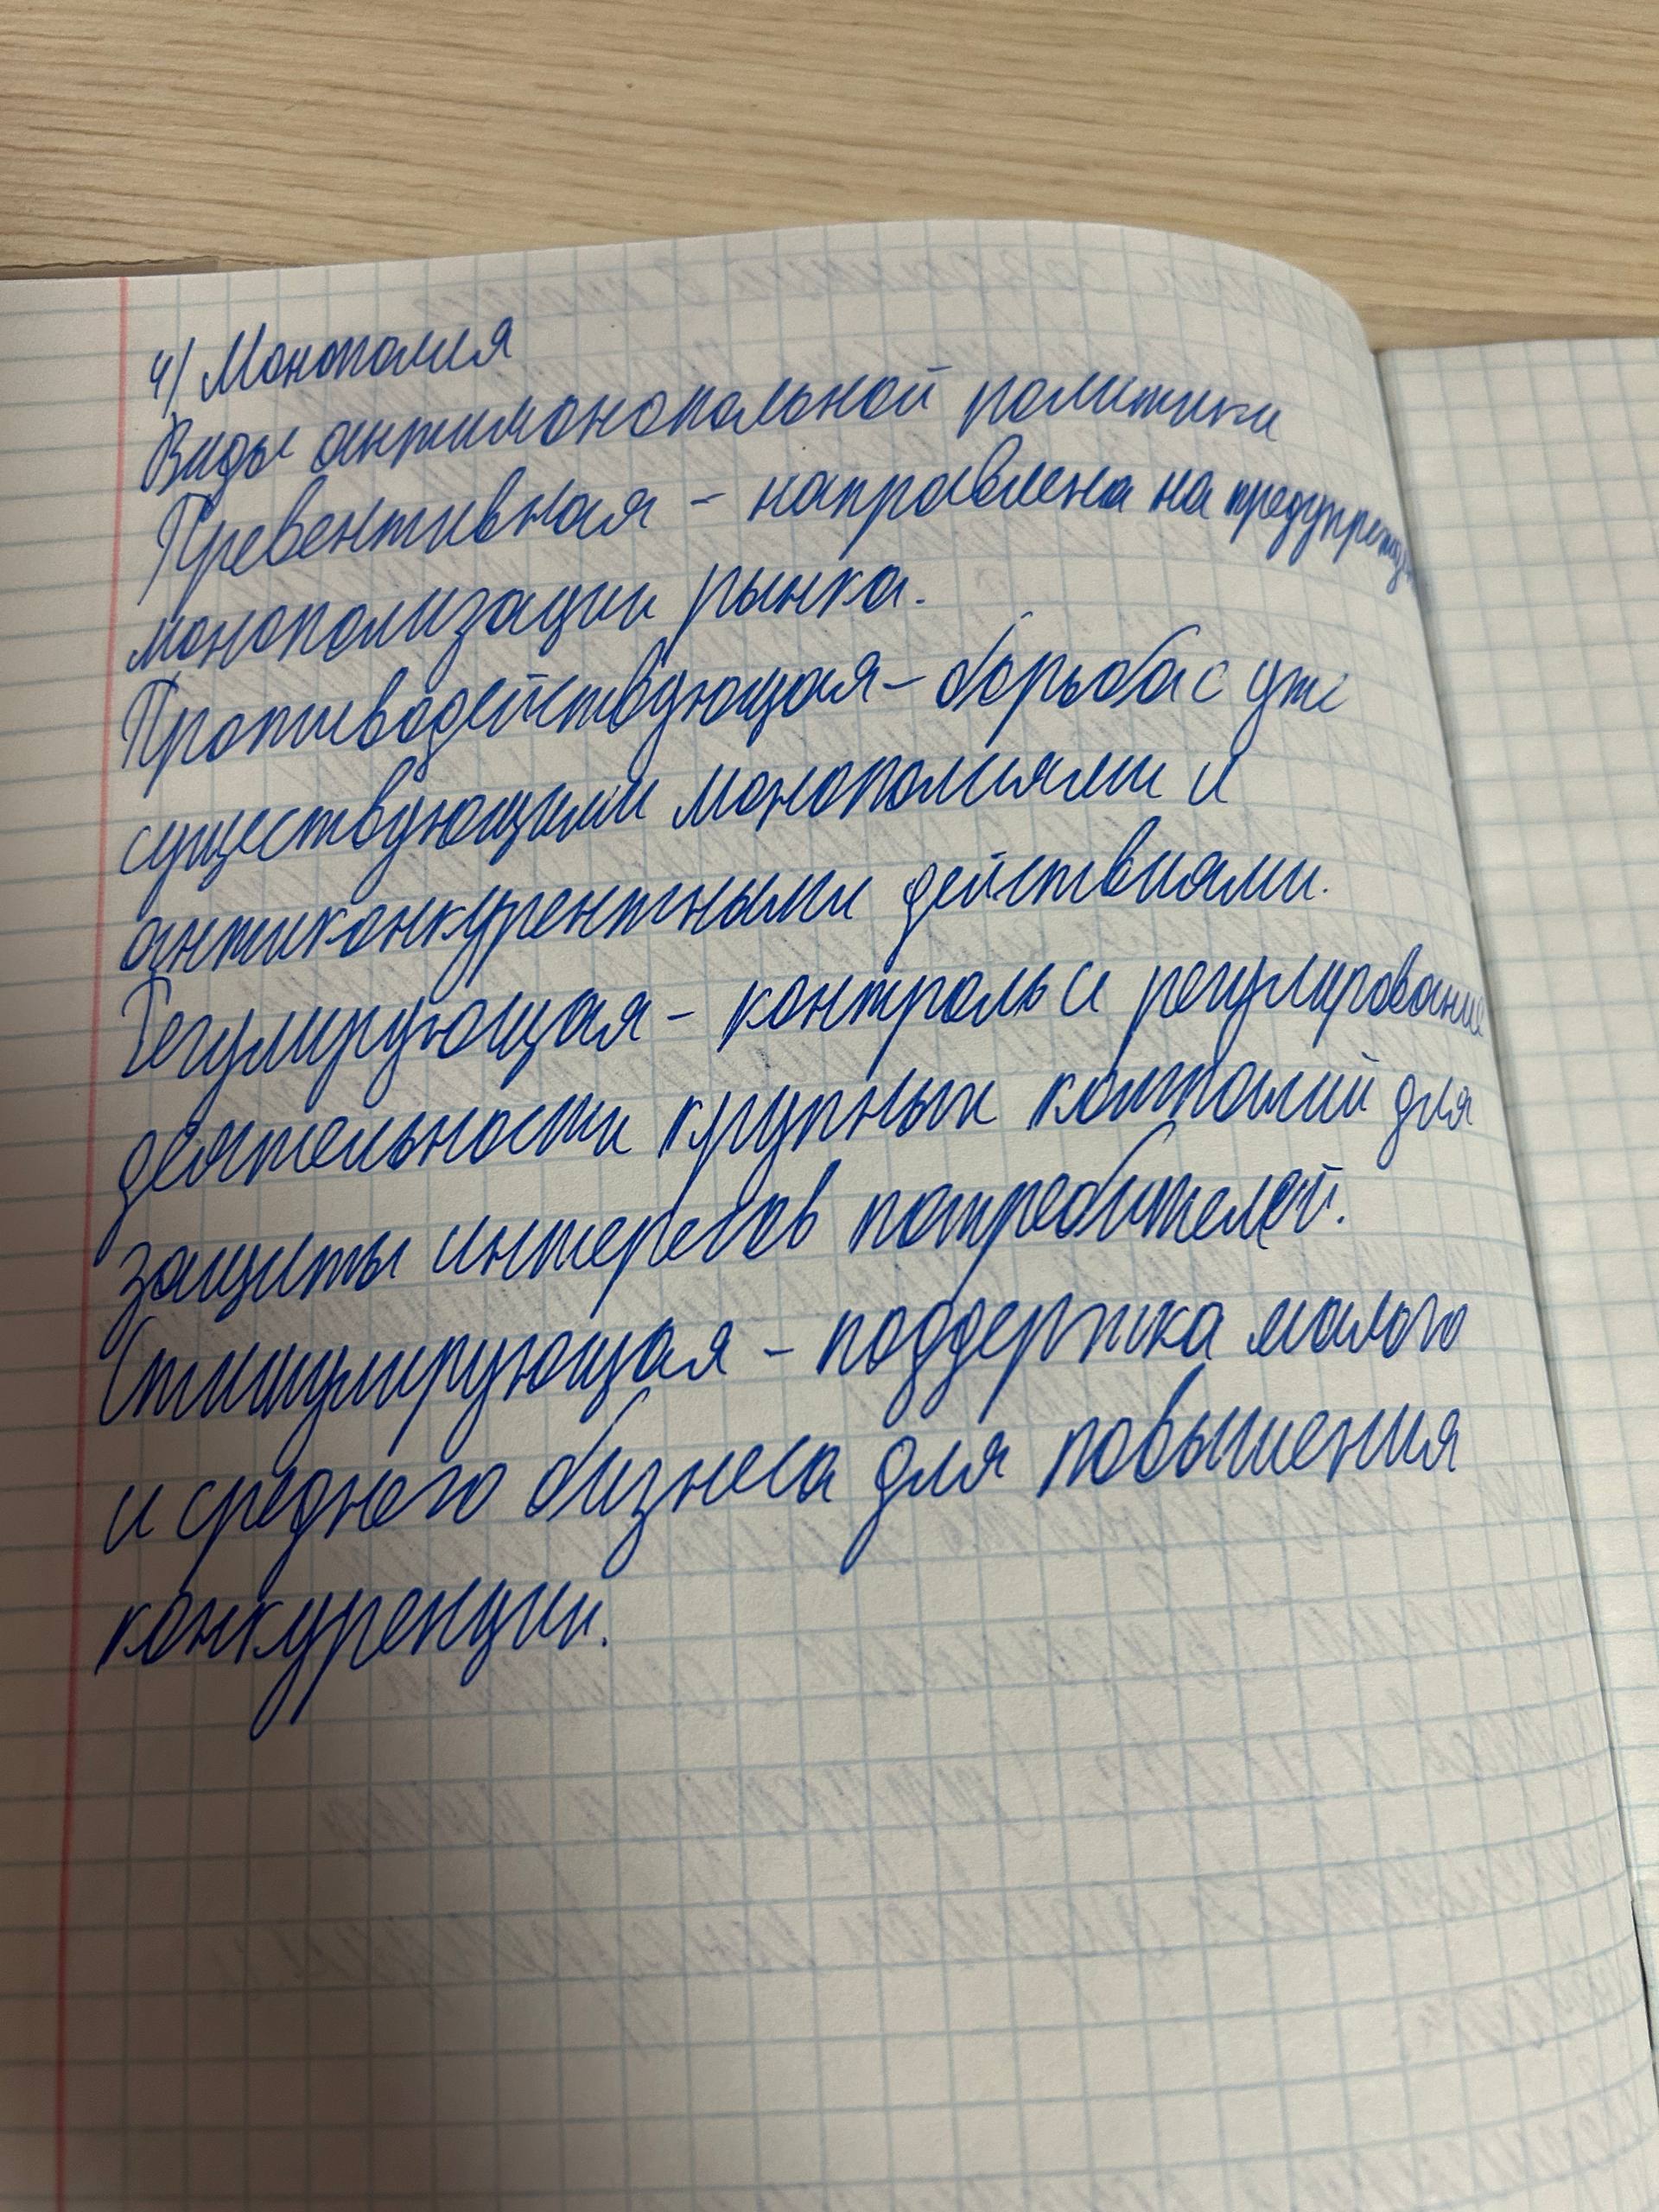 4) Монополия
Виды антимонопольной политики
Превентивная - направлена на
монополизации рынка.
Противодействующая - борьба с уже
существующими монополиями и
антиконкурентными действиями.
Регулирующая - контроль и регулирование
деятельности крупных компаний для
защиты интересов потребителей.
Стимулирующая - поддержка малого
и среднего бизнеса для повышения
конкуренции.